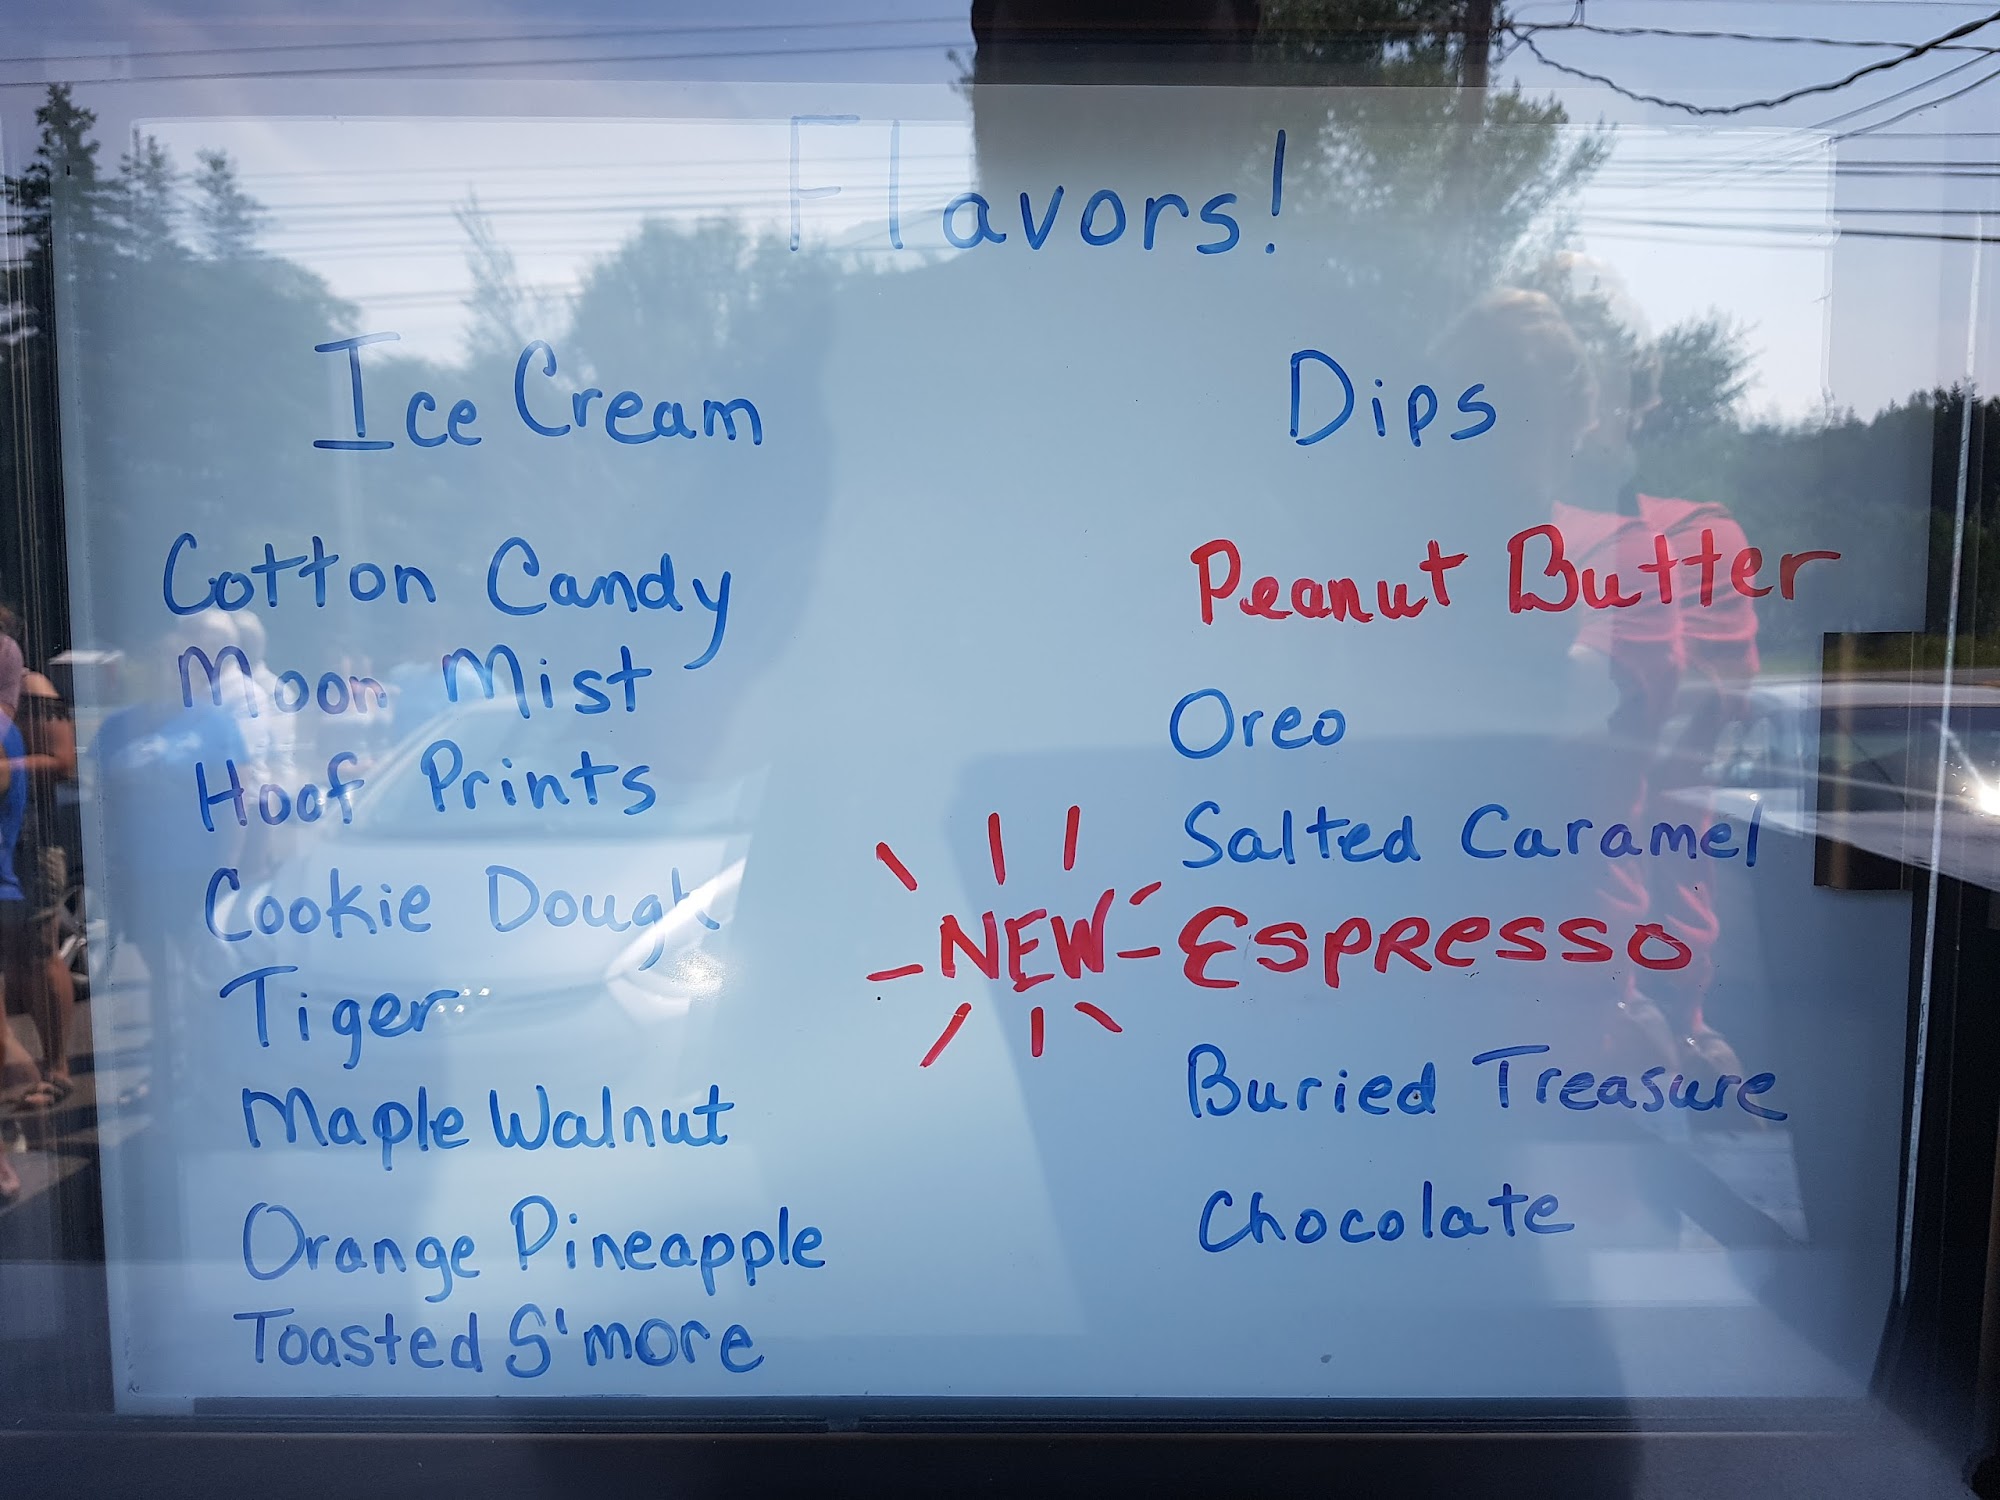 Flavors!
Ice Cream
Cotton Candy
Moon Mist
Hoof Prints
Cookie Dough
Tiger
Maple Walnut
Orange Pineapple
Toasted S'more
Dips
Peanut Butter
Oreo
Salted Caramel
NEW Espresso
Buried Treasure
Chocolate